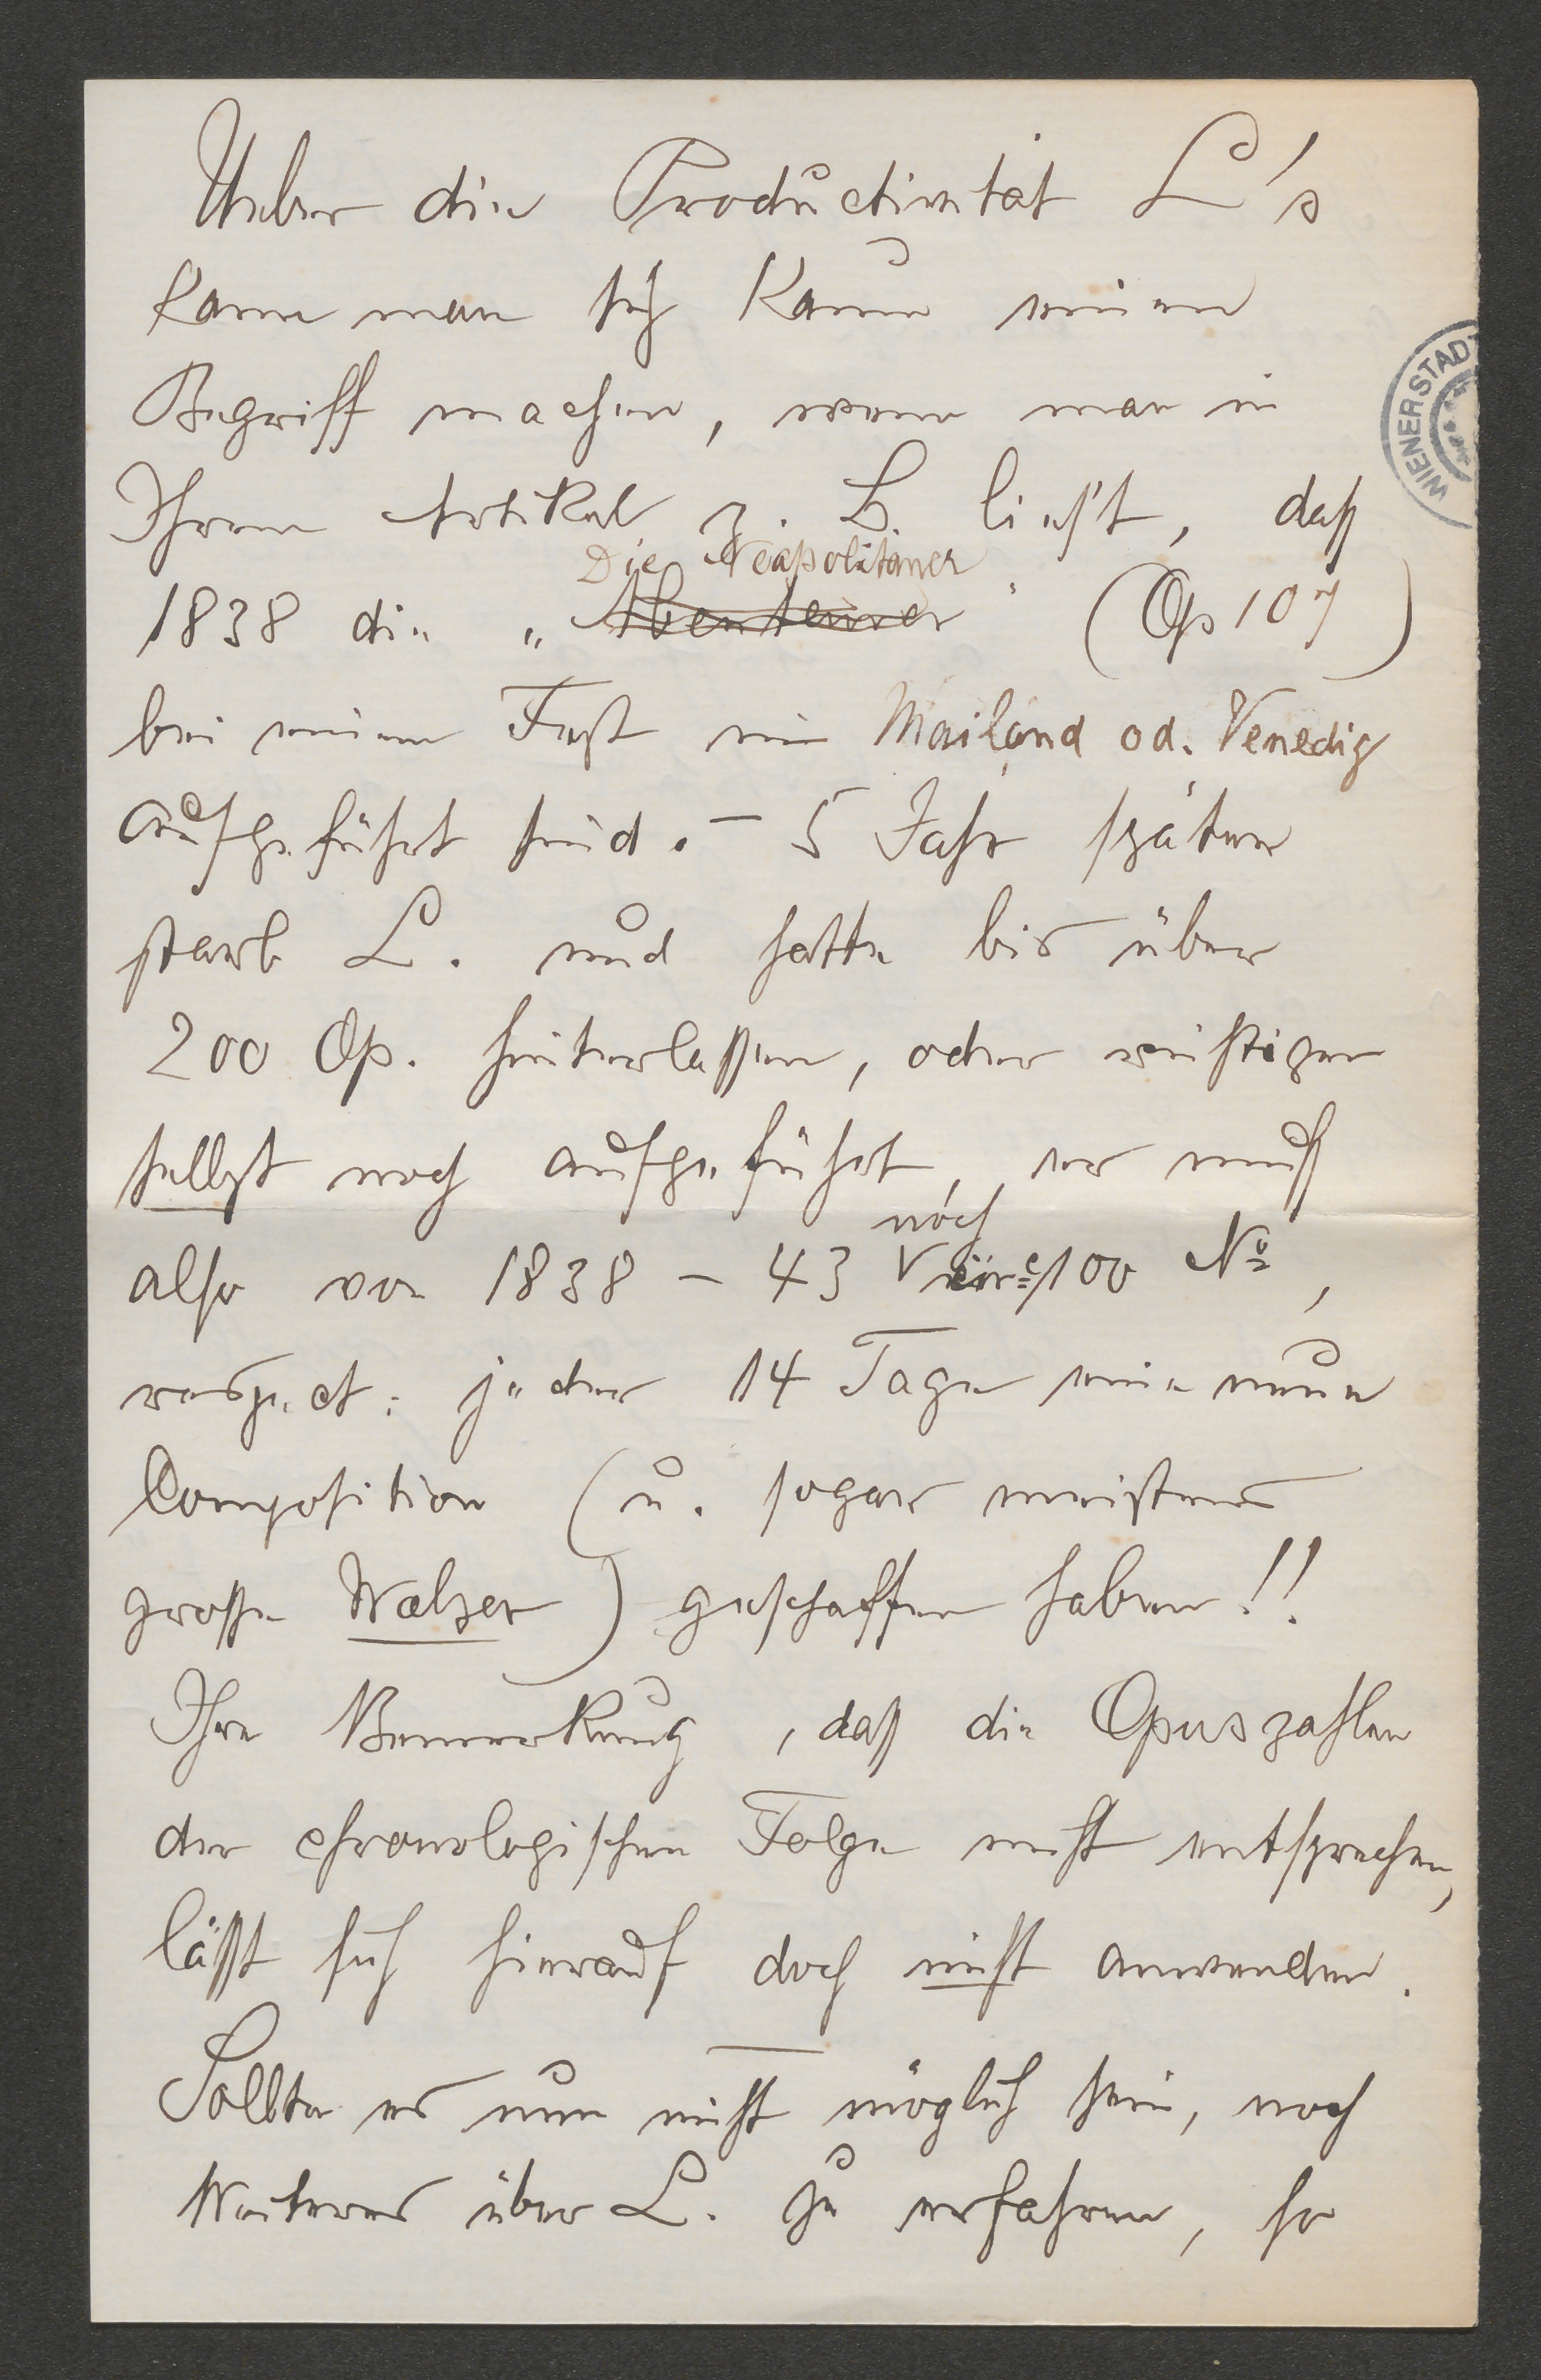 Ueber die Productivität L's
kann man sich kaum einen
Begriff machen, wenn man in
Ihrem Artikel z. B. liest, daß
Die Neapolitaner
1838 die „Abenteurer" (Op 107)
bei einem Fest in Mailand od. Venedig
aufgeführt sind. – 5 Jahr später
starb L. und hatte bis über
200 Op. hinterlassen, oder richtiger
selbst noch aufgeführt, er muß
noch
also von 1838 – 43 100 No,
respect. jeder 14 Tage eine neue
Composition (u. sogar meistens
grosse Walzer) geschaffen haben!!
Ihre Bemerkung, daß die Opuszahlen
der chronologischen Folge nicht entsprechen,
läßt sich hierauf doch nicht anwenden.
Sollte es nun nicht möglich sein, noch
Weiteres über L. zu erfahren, so
WIENER STADT